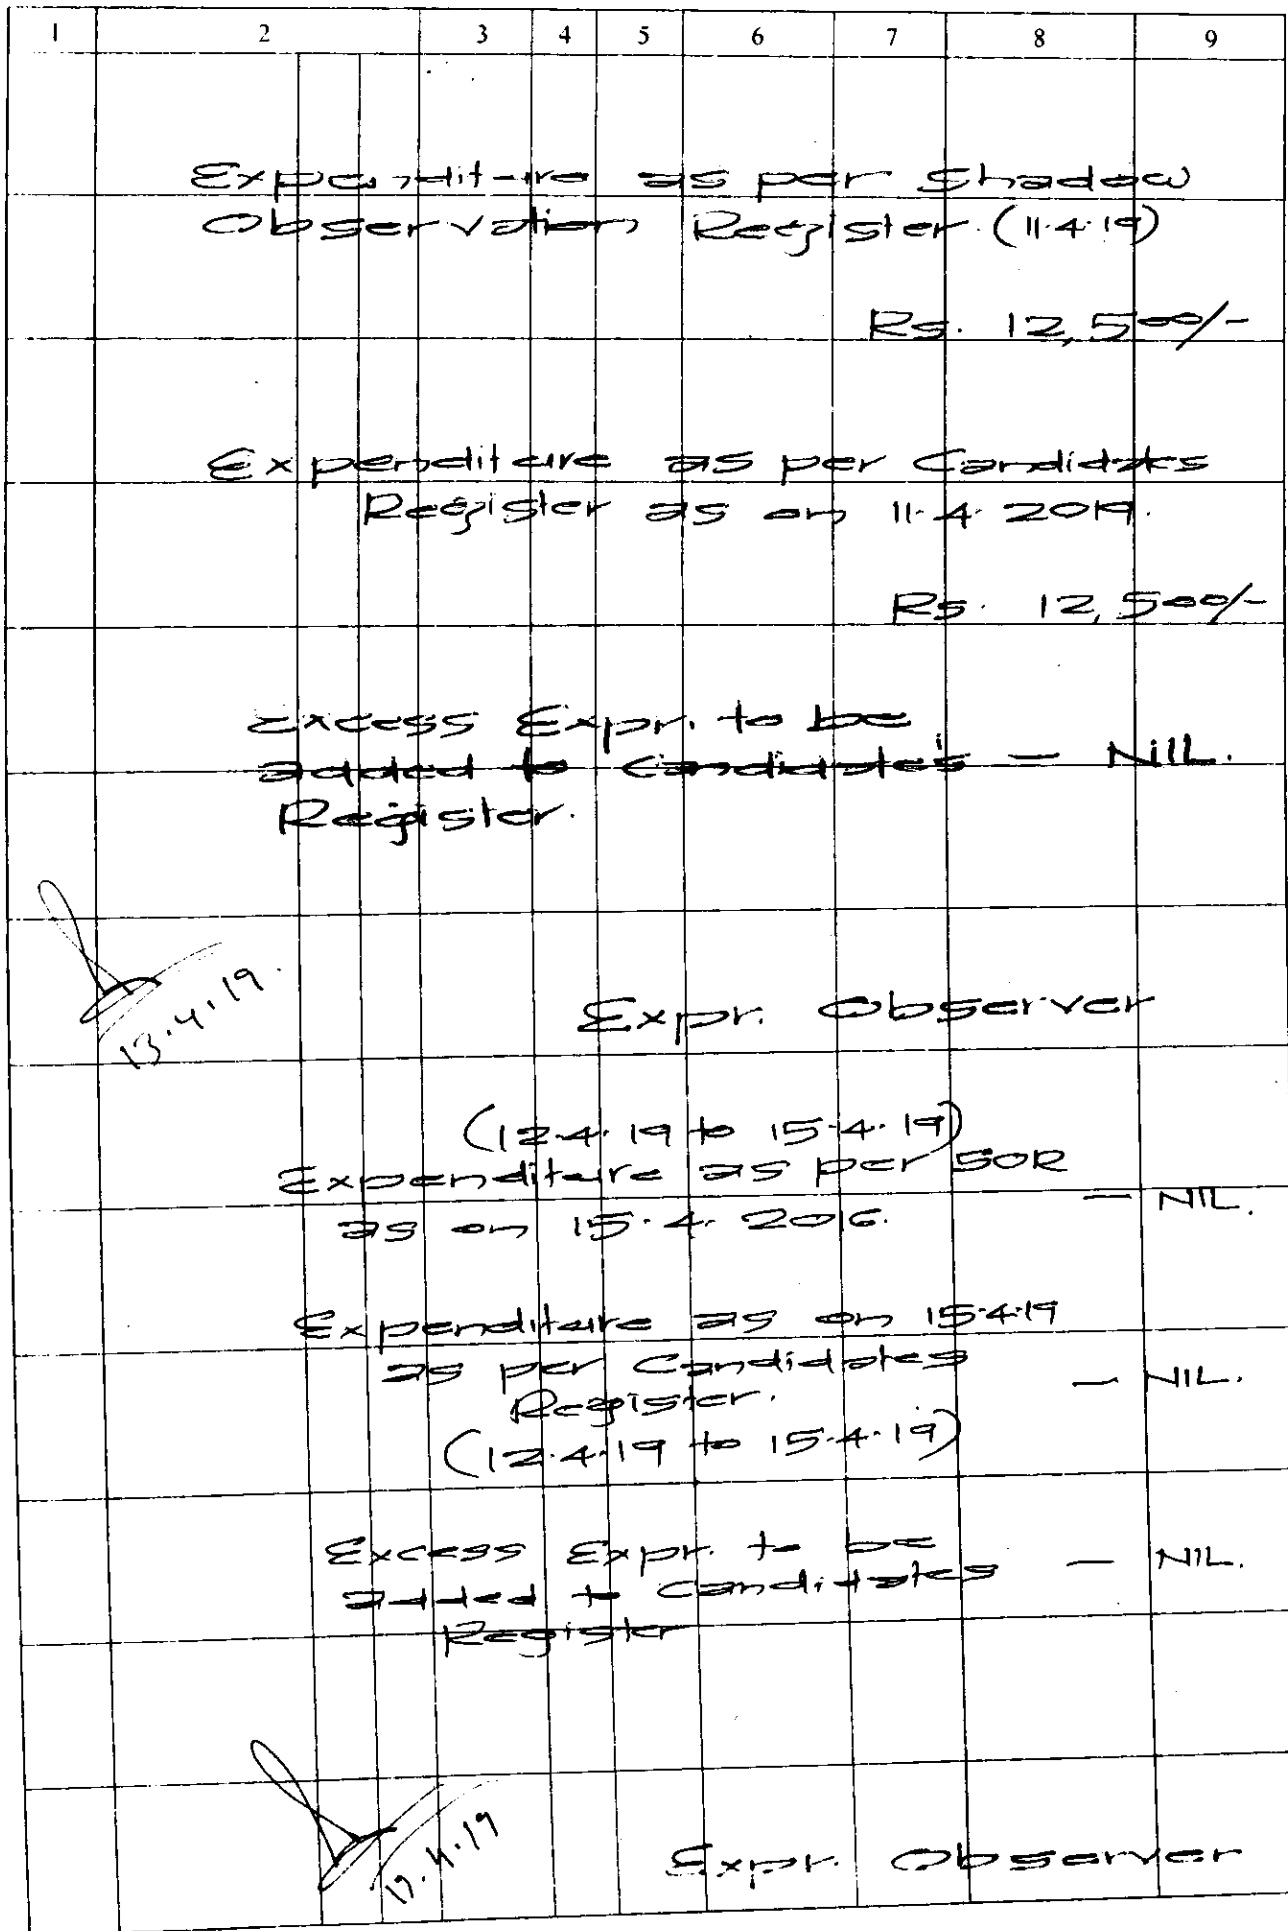 1 2 3 4 5 6 7 8 9
Expenditure as per Shadow
Observation Register. (11.4.19)
Rs. 12,500/-
Expenditure as per Candidates
Register as on 11.4.2019.
Rs. 12,500/-
Excess Expr. to be
added to Candidate's — NiLL.
Register.
13.4.19.
Expr. Observer
(12.4.19 to 15.4.19)
Expenditure as per SOR
as on 15.4.2016. — NIL.
Expenditure as on 15.4.19
as per Candidates
Register. — NIL.
(12.4.19 to 15.4.19)
Excess Expr. to be
added to Candidates — NIL.
Register
Expr. Observer